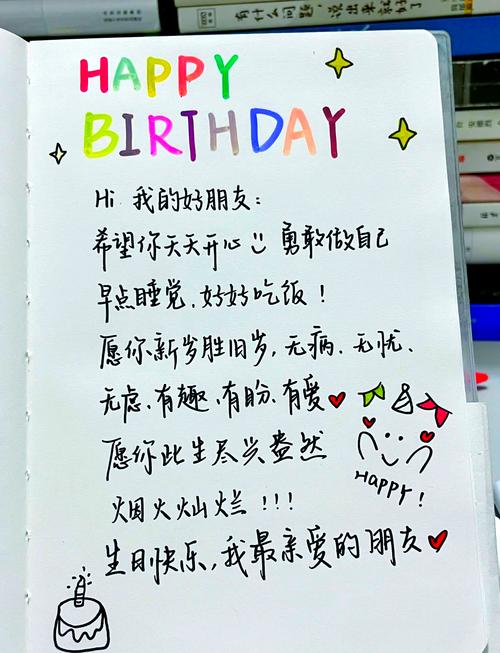 有什么问题，说出来就好了
HAPPY
BIRTHDAY
Hi 我的好朋友：
希望你天天开心 勇敢做自己
早点睡觉、好好吃饭！
愿你新岁胜旧岁，无病、无忧、
无虑、有趣、有盼、有爱
愿你此生尽兴盎然
烟火灿烂！！！
HAPPY!
生日快乐，我最亲爱的朋友